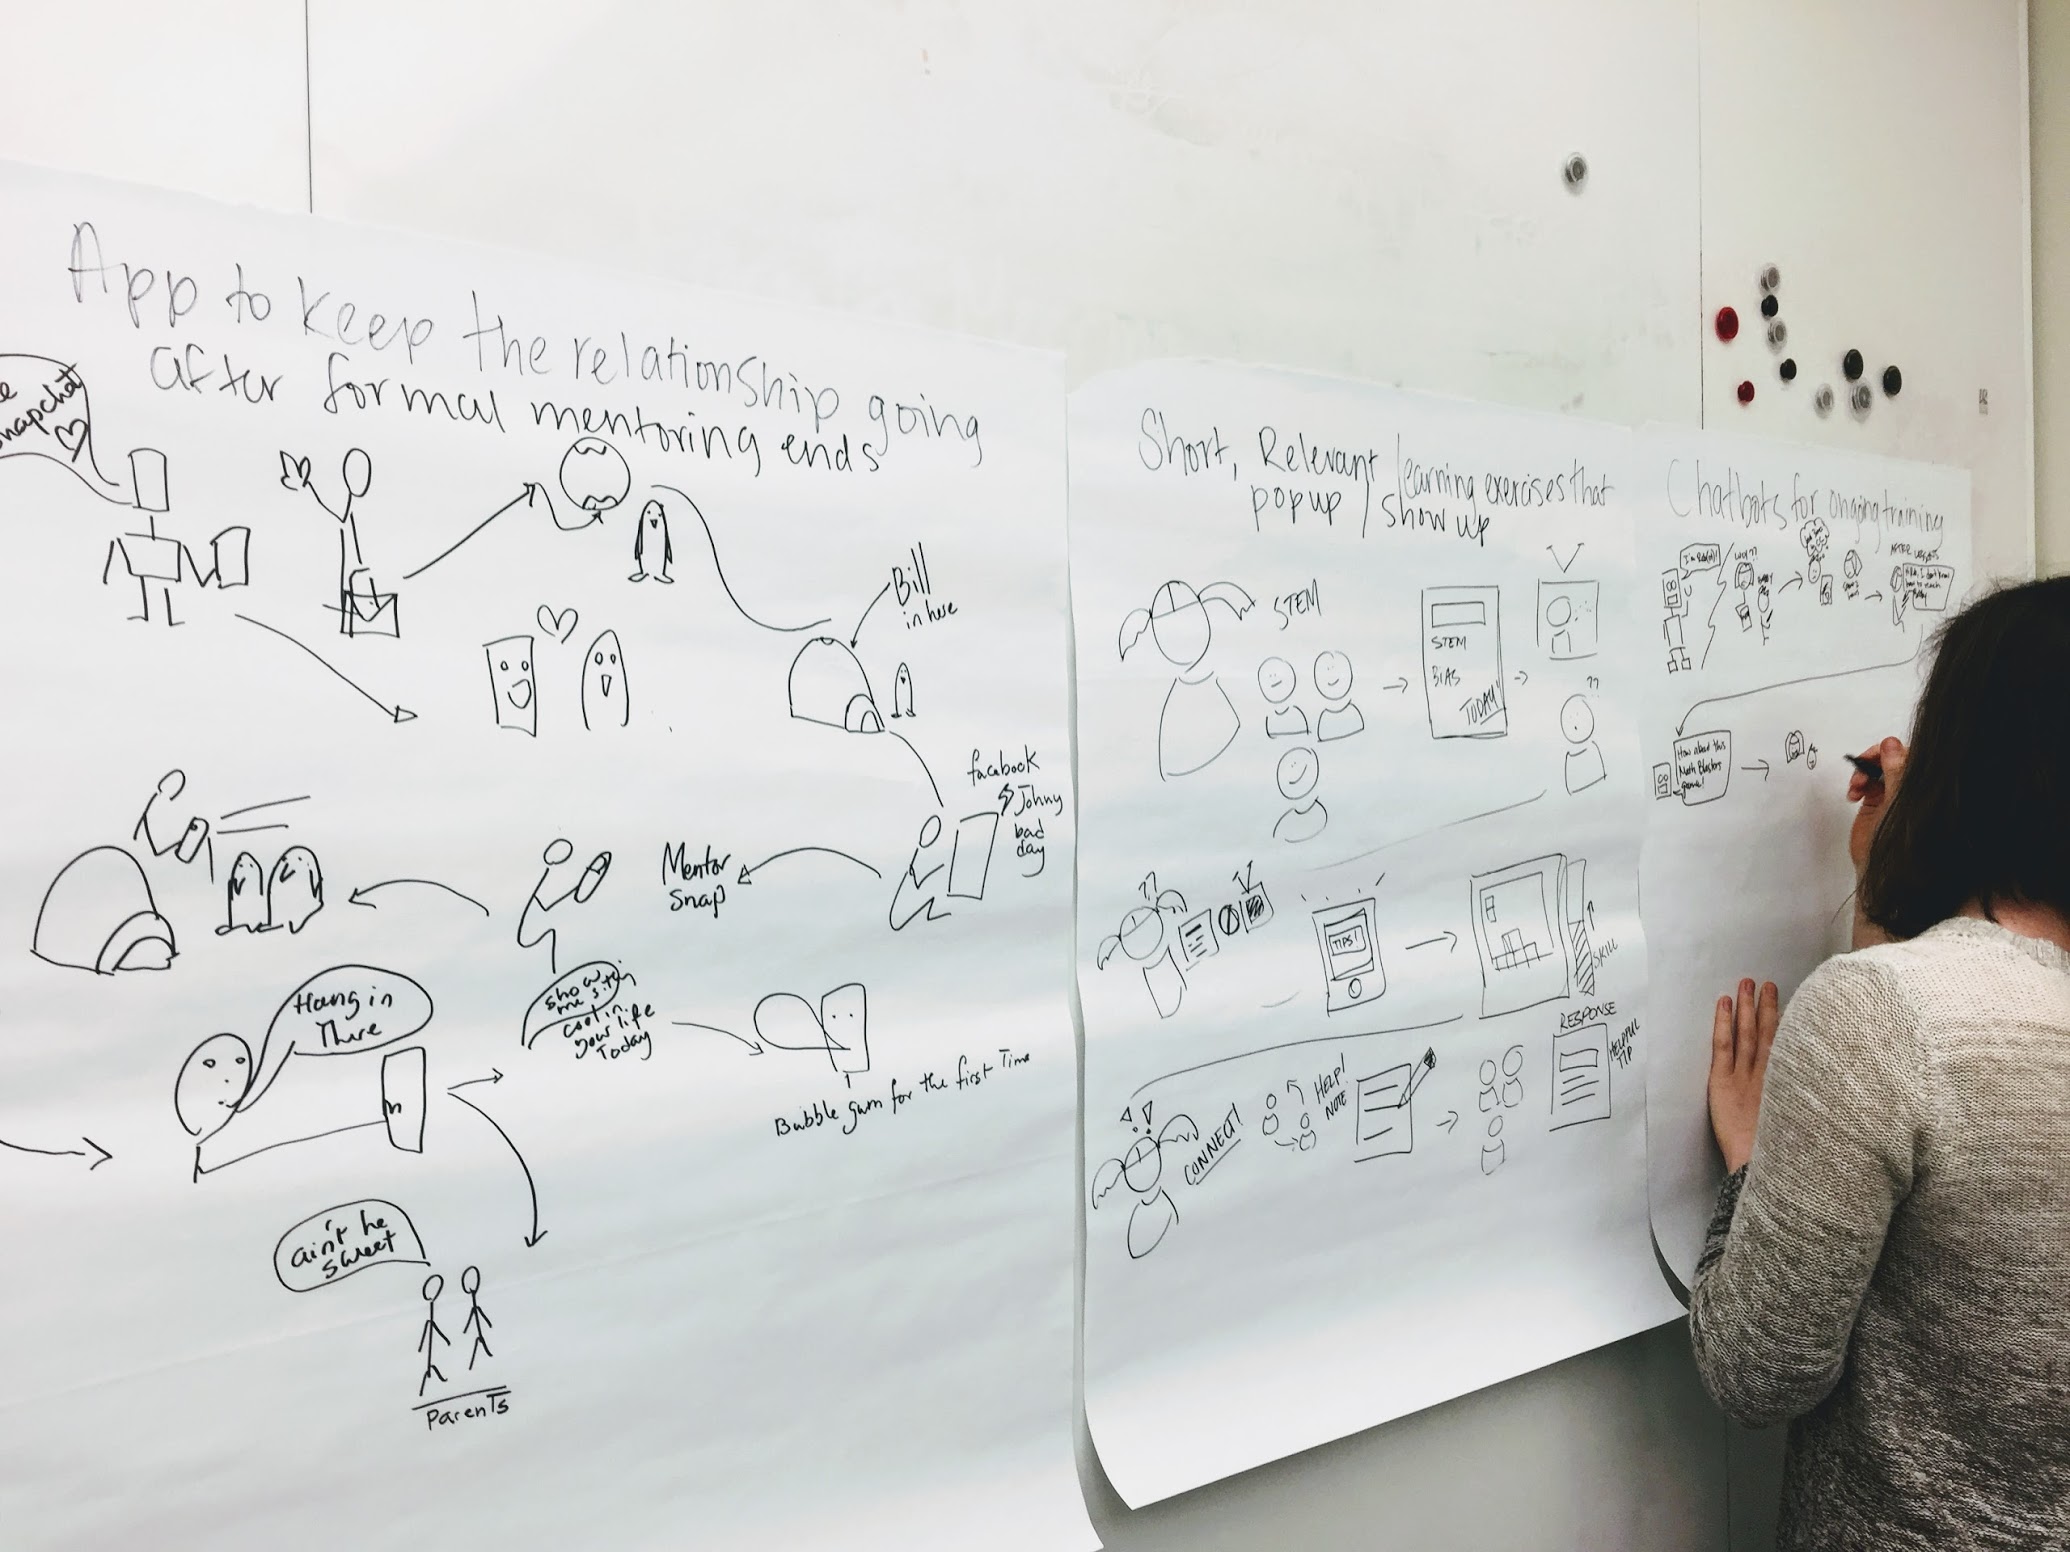 App to keep the relationship going
after formal mentoring ends
snapchat
Bill
in here
facebook
Johny
bad
day
Mentor
Snap
Hang in
There
show
me
cool in
your life
Today
Bubble gum for the first Time
ain't he
sweet
Parents
Short, Relevant learning exercises that
popup / show up
STEM
STEM
BIAS
TODAY!
??
??
TIPS!
SKILL
CONNECT!
HELP!
NOTE
RESPONSE
HELPFUL
TIP
Chatbots for ongoing training
How about this
Math Blasters
game!